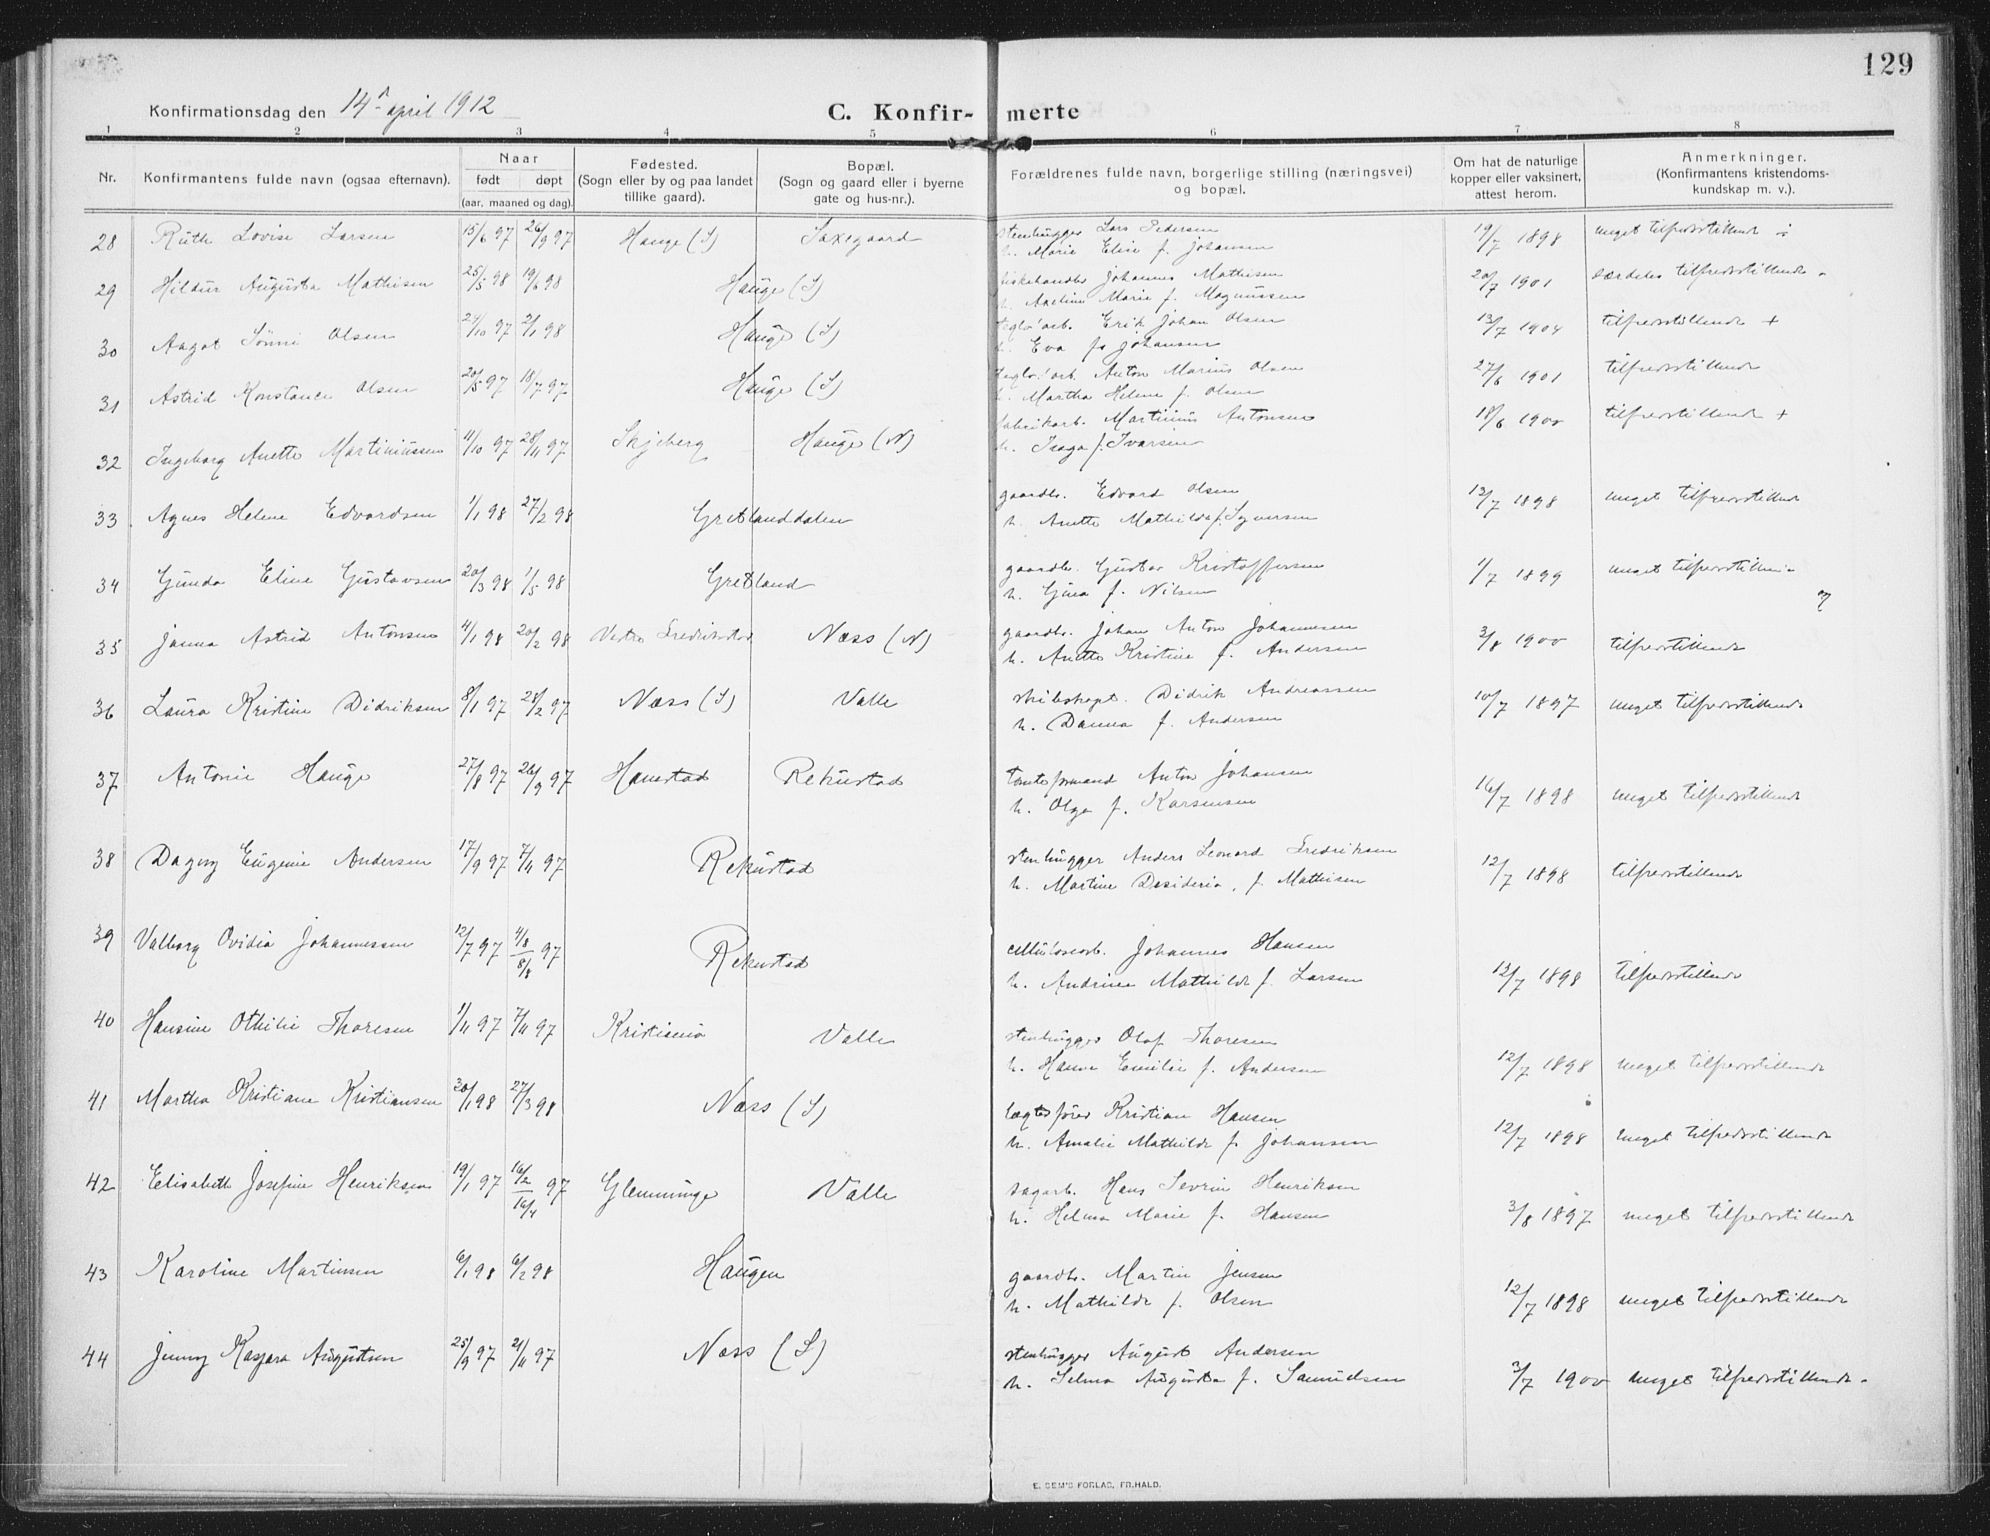 129
Konfirmationsdag den 14de april 1912
C. Konfir- merte
1 2 3 4 5 6 7 8
Nr. Konfirmantens fulde navn (ogsaa efternavn). Naar født døpt (aar, maaned og dag). Fødested. (Sogn eller by og paa landet tillike gaard). Bopæl. (Sogn og gaard eller i byerne gate og hus-nr.). Forældrenes fulde navn, borgerlige stilling (næringsvei) og bopæl. Om hat de naturlige kopper eller vaksinert, attest herom. Anmerkninger. (Konfirmantens kristendoms-kundskap m. v.).
28 Ruth Lovise Larsen 15/6 97 26/9 97 Hauge (S) Saxegaard stenhugger Lars Pedersen 19/7 1898 meget tilfredsstillende ÷
h. Marie Elise f. Johansen
29 Hildur Augusta Mathisen 25/5 98 19/6 98 Hauge (S) fiskehandler Johannes Mathisen 20/7 1901 særdeles tilfredsstillende
h. Axeline Marie f. Magnussen
30 Aagot Sønni Olsen 24/10 97 2/1 98 Hauge (S) teglv.arb. Erik Johan Olsen 13/7 1904 tilfredsstillende +
h. Eva f. Johansen
31 Astrid Konstance Olsen 20/5 97 18/7 97 Hauge (S) teglv.arb. Anton Marius Olsen 27/6 1901 tilfredsstillende
h. Martha Helene f. Olsen
32 Ingeborg Anette Martiniussen 4/10 97 28/11 97 Skjeberg Hauge (N) fabrikarb. Martinius Antonsen 18/6 1900 tilfredsstillende +
h. Isaga f. Ivarsen
33 Agnes Helene Edvardsen 1/1 98 27/2 98 Gretlanddalen gaardbr. Edvard Olsen 12/7 1898 meget tilfredsstillende
h. Anette Mathilde f. Syversen
34 Gunda Eline Gustavsen 20/3 98 1/5 98 Gretland gaardbr. Gustav Kristoffersen 1/7 1899 meget tilfredsstillende
h. Gina f. Nilsen
35 Janna Astrid Antonsen 4/1 98 20/2 98 Vestre Fredrikstad Næss (N) gaardbr. Johan Anton Johannesen 3/8 1900 tilfredsstillende
h. Anette Kristine f. Andersen
36 Laura Kristine Didriksen 8/1 97 28/2 97 Næss (S) Valle skibskapt. Didrik Andreassen 10/7 1897 meget tilfredsstillende
h. Danna f. Andersen
37 Antonie Hauge 27/8 97 26/9 97 Hanestad Rekustad tomteformand Anton Johansen 16/7 1898 meget tilfredsstillende
h. Olga f. Karsensen
38 Dagny Eugenie Andersen 17/9 97 7/11 97 Rekustad stenhugger Anders Leonard Fredriksen 12/7 1898 tilfredsstillende
h. Martine Desideria, f. Mathisen
39 Valborg Ovidia Johannessen 12/7 97 4/8 8/8 97 Rekustad cellulosearb. Johannes Hansen 12/7 1898 tilfredsstillende
h. Andrine Mathilde f. Larsen
40 Hansine Othilie Thoresen 1/11 97 7/11 97 Kristiania Valle stenhugger Olaf Thoresen 12/7 1898 meget tilfredsstillende
h. Hanna Emilie f. Andersen
41 Martha Kristiane Kristiansen 30/1 98 27/3 98 Næss (S) lægtefører Kristian Hansen 12/7 1898 meget tilfredsstillende
h. Amalie Mathilde f. Johansen
42 Elisabeth Josefine Henriksen 19/1 97 16/2 16/4 97 Glemminge Valle sagarb. Hans Sevrin Henriksen 3/8 1897 meget tilfredsstillende
h. Helma Marie f. Hansen
43 Karoline Martinsen 6/1 98 6/2 98 Haugen gaardbr. Martin Jensen 12/7 1898 meget tilfredsstillende
h. Mathilde f. Olsen
44 Jenny Kaspara Augustsen 25/9 97 21/11 97 Næss (S) stenhugger August Andersen 3/7 1900 meget tilfredsstillende
h. Selma Augusta f. Samuelsen
E. SEM'S FORLAG, FR.HALD.